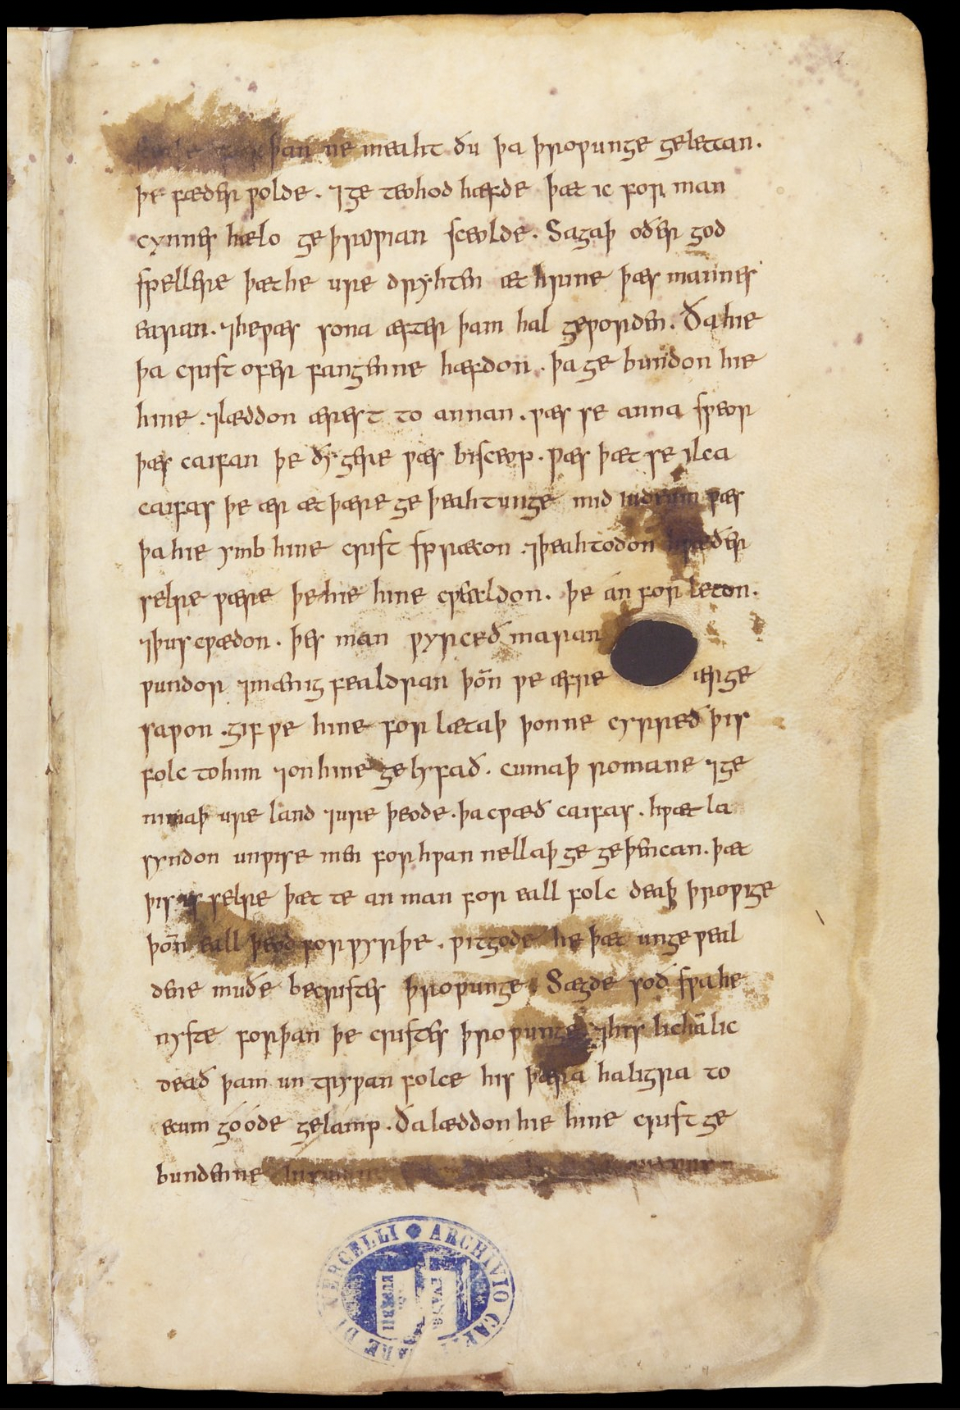 þan ne meaht ðu þa þroƿunge gelettan.
þe fæder ƿolde. ⁊ ge teohod hæfde þæt ic for man
cynnes hælo ge þroƿian sceolde. Sagaþ oðer god
spellere þæt he ure dryhten æt hrine þæs mannes
earan. ⁊ he ƿæs sona æfter þam hal geƿorden. Ða hie
þa crist ofer fangenne hæfdon. þa ge bundon hie
hine. ⁊ læddon ærest to annan. ƿæs se anna sƿeor
þæs caifan þe ðy geare ƿæs bisceop. ƿæs þæt se ylca
caifas þe ær æt þære ge þeahtunge mid iudeum ƿæs
þa hie ymb hine crist spræcon. ⁊ þeahtodon hƿæðer
selre ƿære þe hie hine cƿealdon. þe án for leton.
⁊ þus cƿædon. þes man ƿyrceð maran
ƿundor ⁊ mænig fealdran þoñ ƿe æfre ærge
saƿon. gif ƿe hine for lætaþ þonne cyrreð þis
folc to him ⁊ on hine ge lyfað. cumaþ romane ⁊ ge
nimaþ ure land ⁊ ure þeode. þa cƿæð caifas. hƿæt la
syndon unƿise men for hƿan nellaþ ge geþencan. þæt
þis is selre þæt te an man for eall folc deaþ þroƿige
þoñ eall þeod for ƿyrþe. ƿitgode he þæt ungeƿeal
dene muðe be cristes þroƿunge. Sægde soð sƿa he
nyste forþan þe cristes þroƿunge ⁊ his lichãlic
deað þam un tryƿan folce his þæra haligra to
ecum goode gelamp. Ða læddon hie hine crist ge
bundenne
ARCHIVIO CAPITOLARE DI VERCELLI